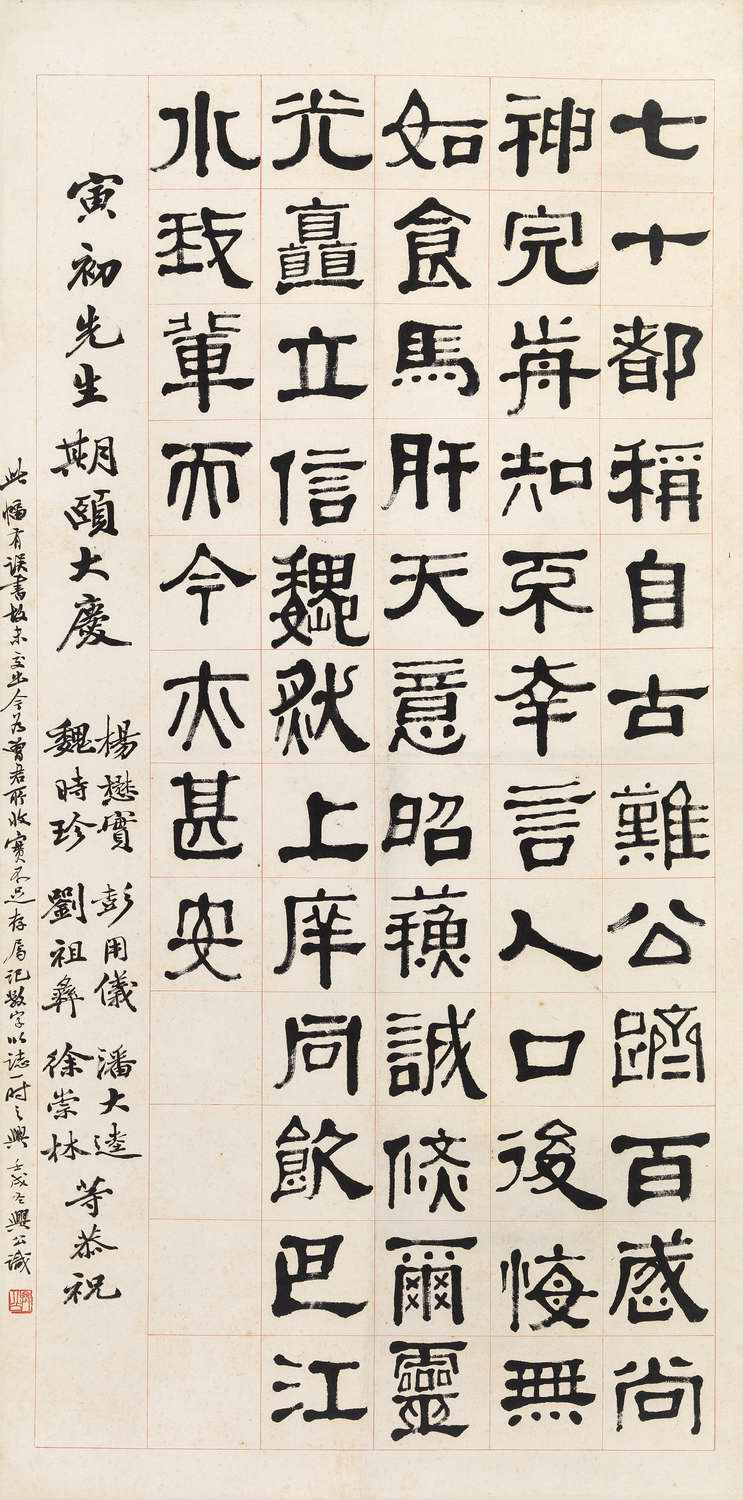 七十都稱自古難公躋百歲尚
神完歬知不幸言人口後悔無
如食馬肝天意昭蘇誠倏爾靈
光矗立信巍然上庠同飲巴江
水我輩而今亦甚安
寅初先生期頤大慶
楊懋實 彭用儀 潘大逵
魏時珍 劉祖彝 徐崇林
等恭祝
此幅有誤書故未交出今為曾君所收實不足存屬記數字以誌一時之興 壬戌冬興公識